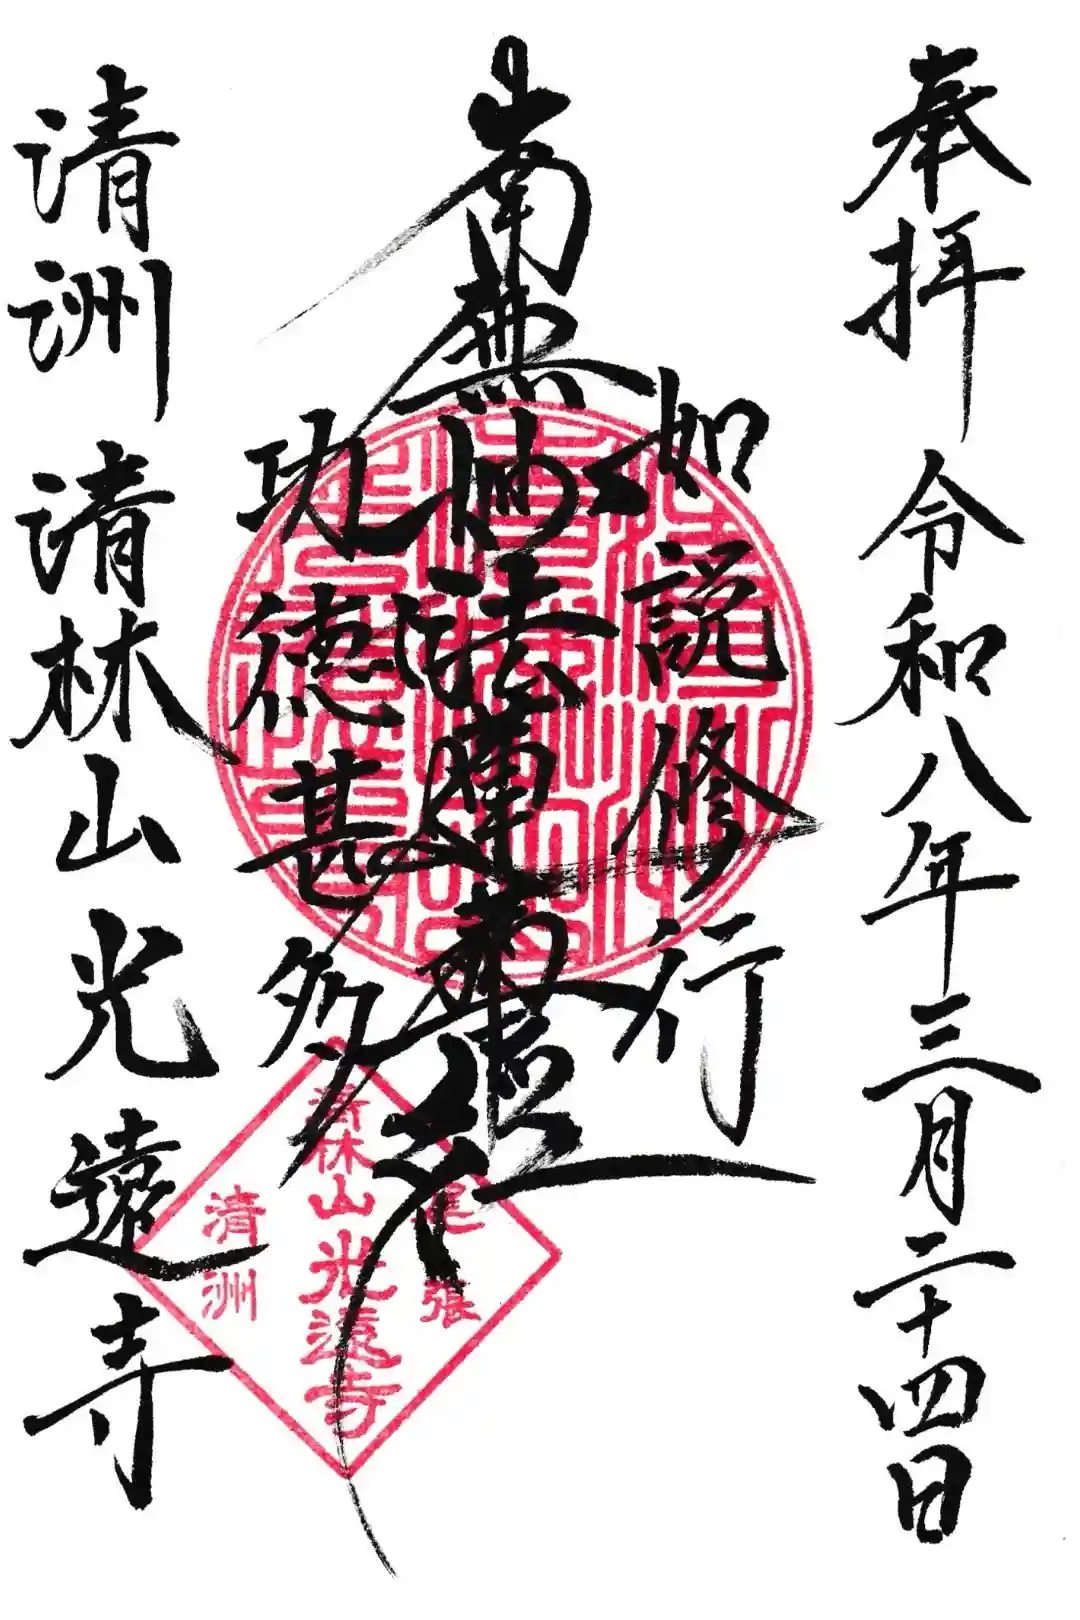 奉拝 令和八年三月二十四日
如説修行
南無妙法蓮華経
功徳甚多
清洲 清林山光遠寺
尾張
清林山光遠寺
清洲